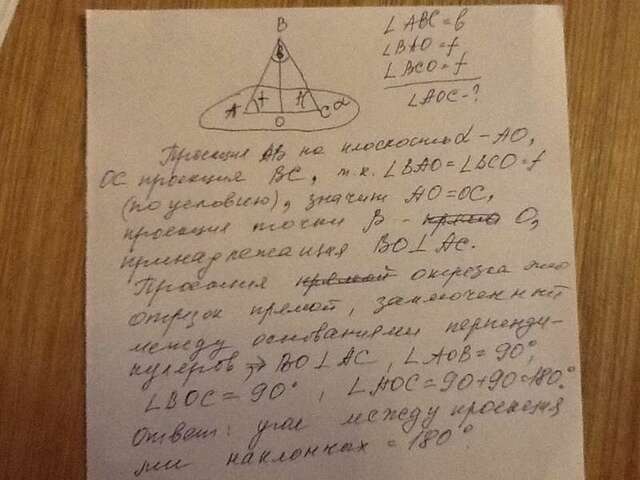 B
∠ABC = β
∠BAO = f
∠BCO = f
∠AOC - ?
β
A f H C α
O
Проекция AB на плоскость α - AO,
OC проекция BC, т.к. ∠BAO = ∠BCO = f
(по условию), значит AO = OC,
проекция точки B - прямо O,
принадлежащая BO⊥AC.
Проекция прямой отрезка это
отрезок прямой, заключенный
между основаниями перпенди-
куляров → BO⊥AC, ∠AOB = 90°,
∠BOC = 90°, ∠AOC = 90+90=180°
Ответ: угол между проекция
ми наклонках = 180°